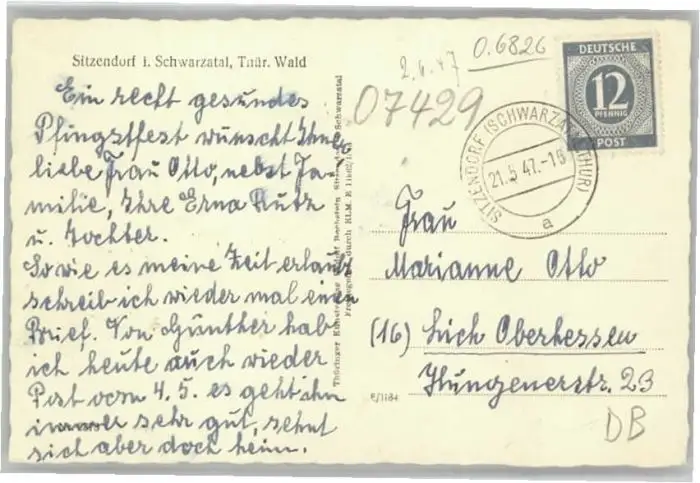 Sitzendorf i. Schwarzatal, Thür. Wald
Ein recht gesundes
Pfingstfest wünscht Ihnen
liebe Frau Otto, nebst Fa-
milie, Ihre Erna Rutz
u. Tochter.
Sowie es meine Zeit erlaubt
schreib ich wieder mal einen
Brief. Von Günther hab
ich heute auch wieder
Post vom 4.5. es geht ihm
immer sehr gut, sehnt
sich aber doch heim.
Schwarzatal
durch KLM.
E/1184
2.6.47
0.6826
07429
DEUTSCHE
12
PFENNIG
POST
SITZENDORF (SCHWARZA
THUR)
21.5.47.-16
a
Frau
Marianne Otto
(16) Lich Oberhessen
Hungenerstr. 23
DB